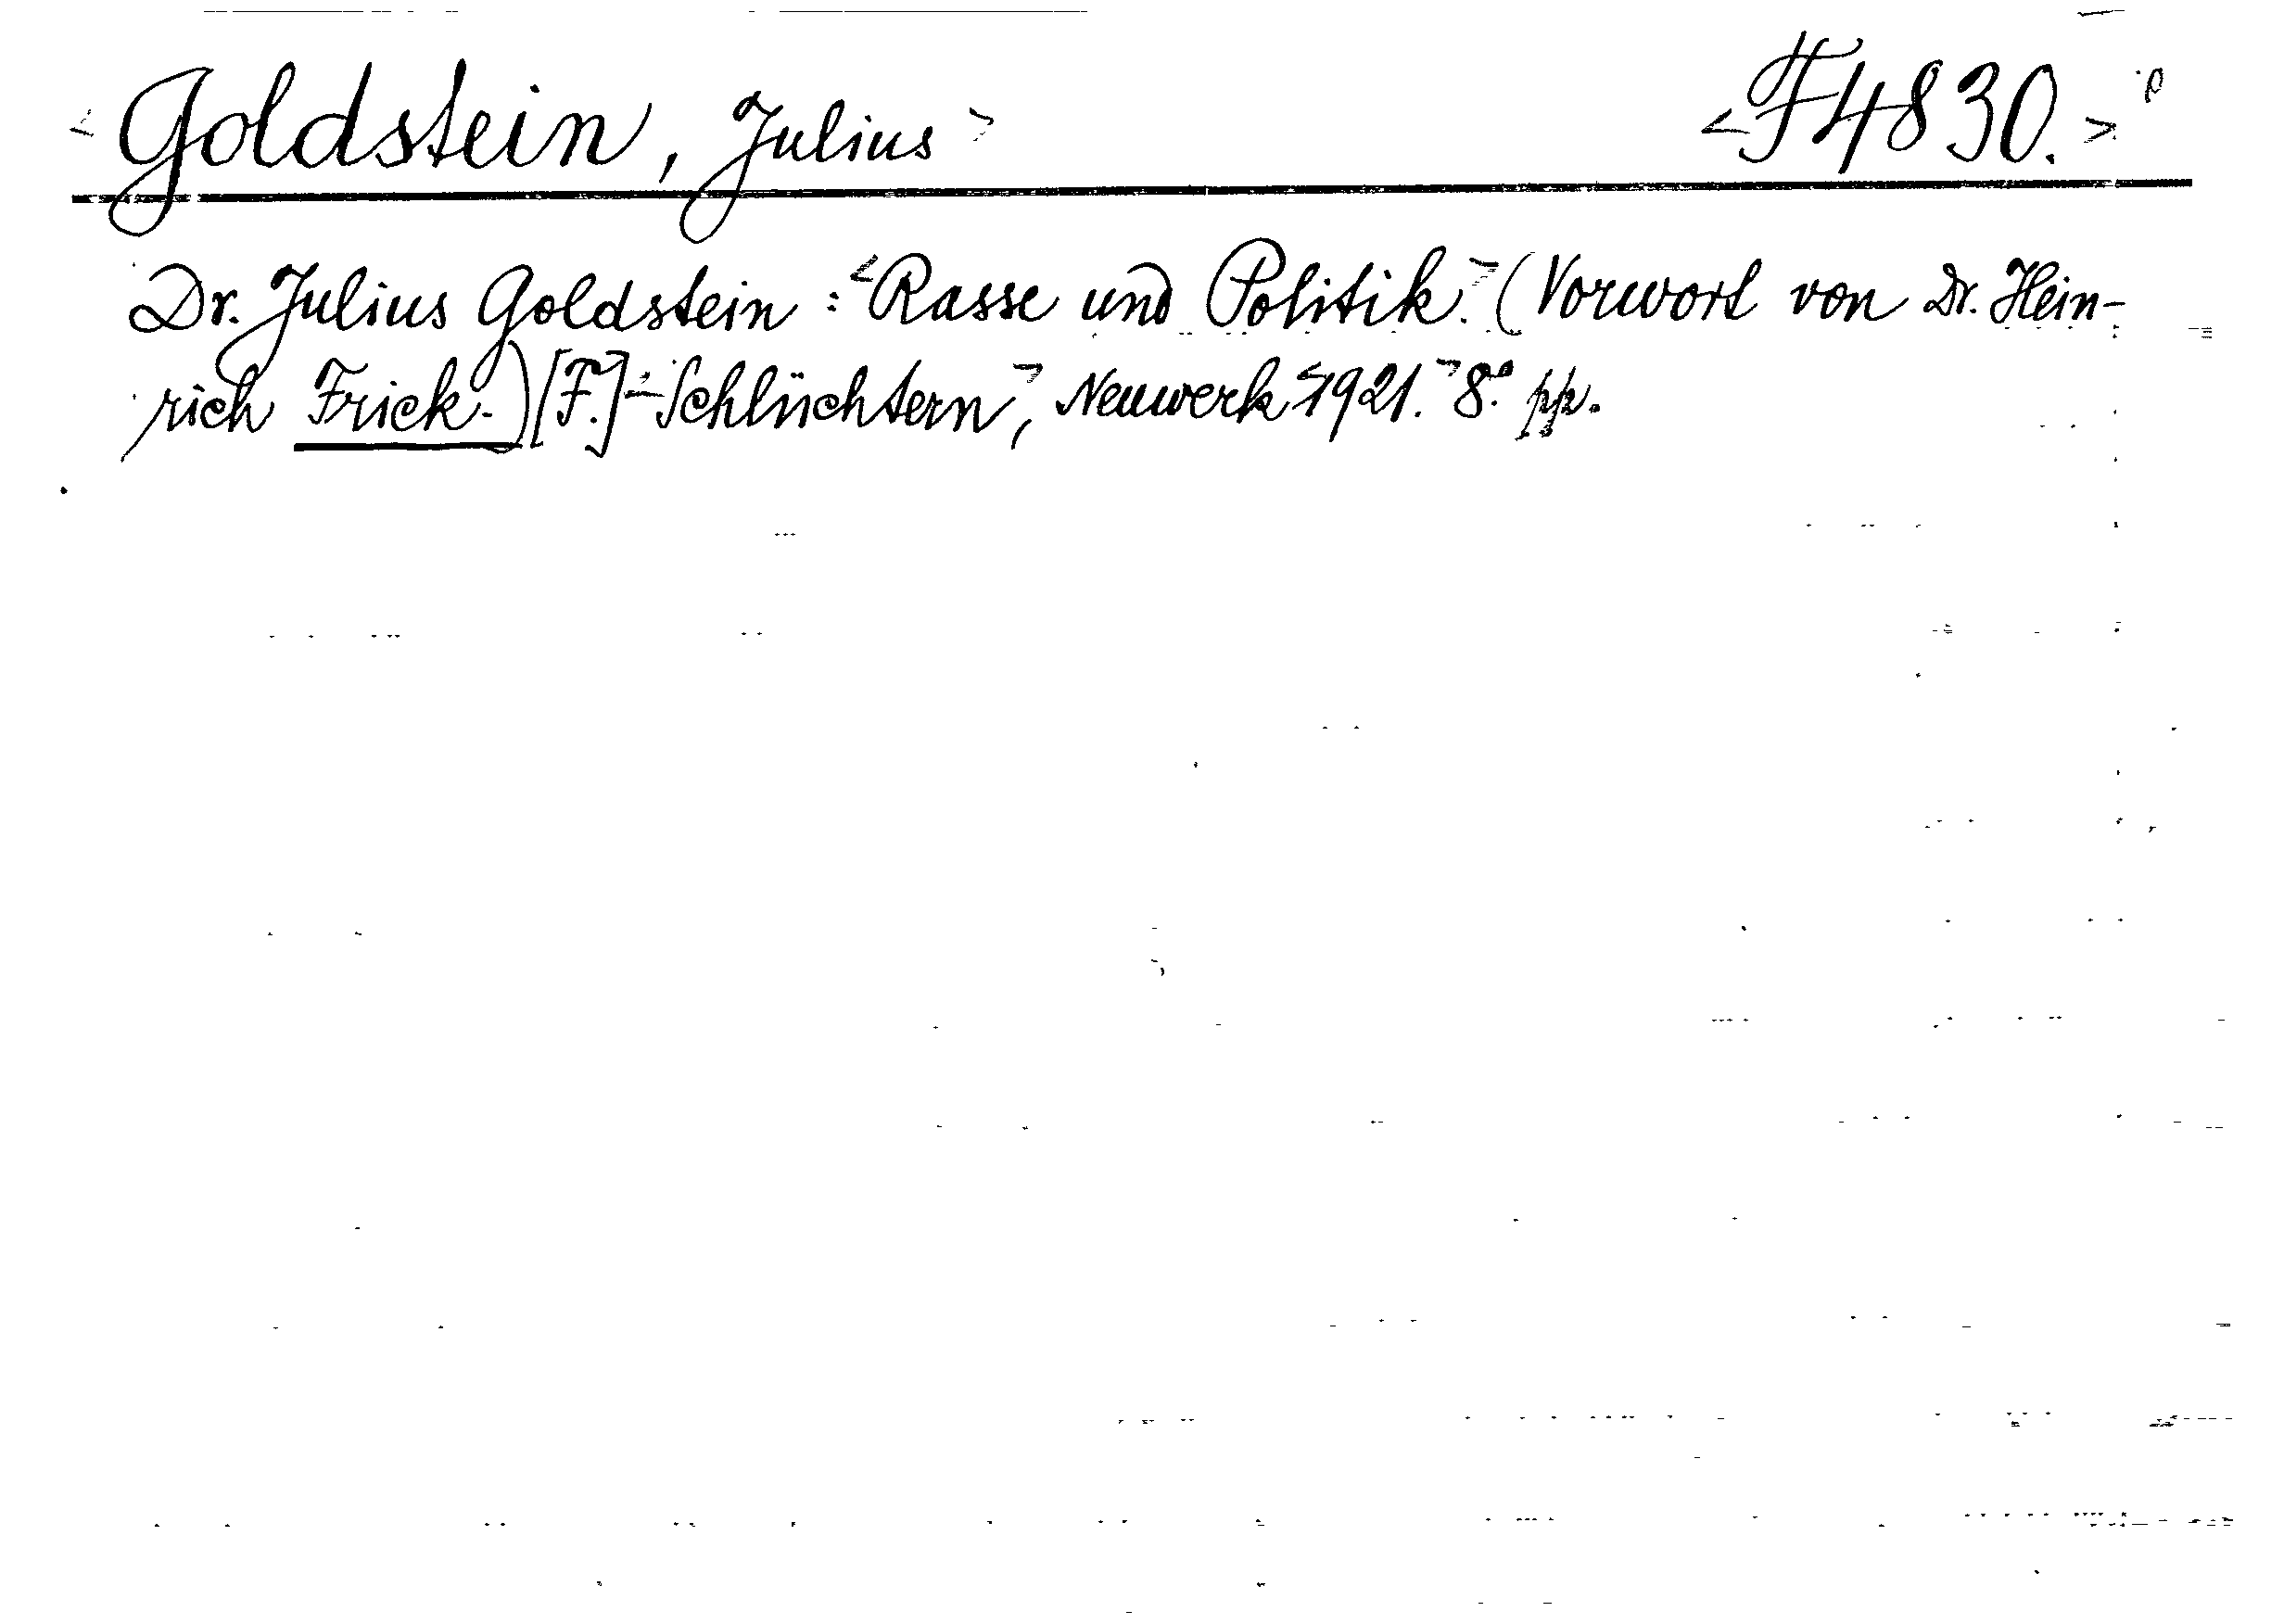 <Goldstein, Julius> <F4830.>
Dr. Julius Goldstein: <Rasse und Politik.> (Vorwort von Dr. Hein-
rich Frick.) [F.] <Schlüchtern>, Neuwerk <1921.> 8.° pp.